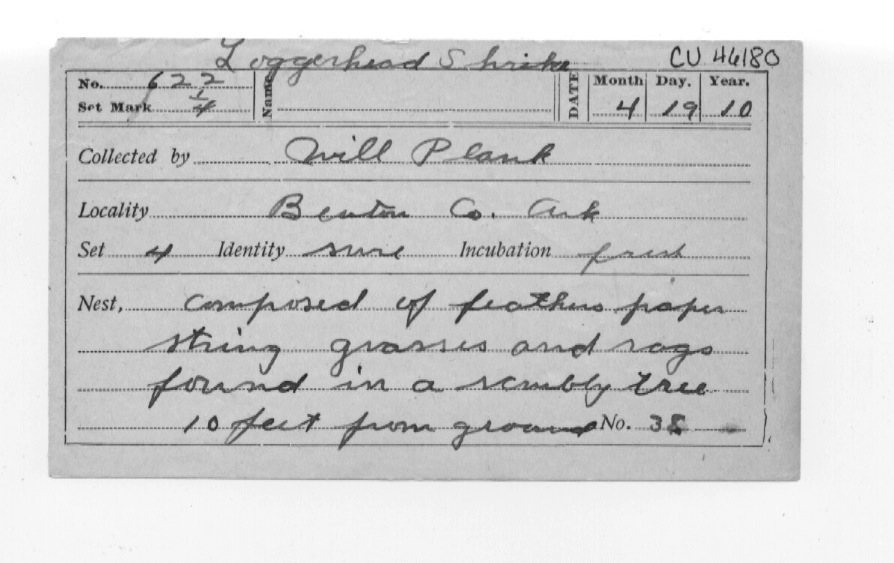 Loggerhead Shrike CU 46180
No. 622 Name DATE Month Day. Year.
Set Mark 1/4 4 19 10
Collected by Will Plank
Locality Benton Co. Ark
Set 4 Identity sure Incubation fresh
Nest, composed of feathers paper
string grasses and rags
found in a scrubly tree
10 feet from ground No. 38